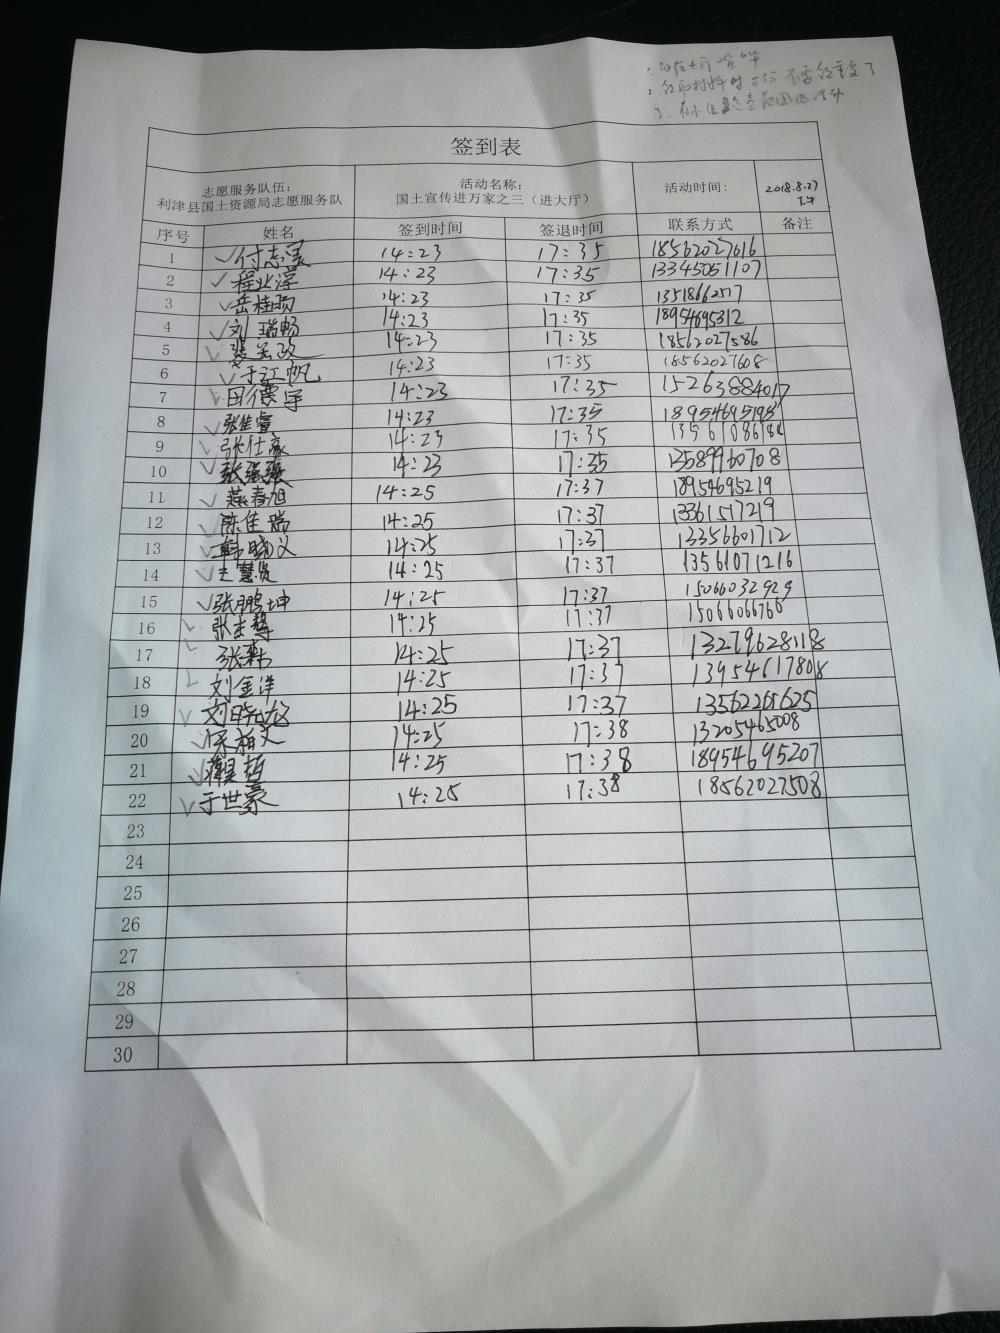 签到表
志愿服务队伍: 活动名称: 活动时间: 2018.8.27
利津县国土资源局志愿服务队 国土宣传进万家之三（进大厅） 下午
序号 姓名 签到时间 签退时间 联系方式 备注
1 14:23 17:35 18562027616
2 程业淳 14:23 17:35 13345051107
3 岳桂昀 14:23 17:35 13518662517
4 刘瑞畅 14:23 17:35 18954695312
5 14:23 17:35 18562027586
6 于江帆 14:23 17:35 18562027608
7 田德宇 14:23 17:35 15263884017
8 张佳睿 14:23 17:35 18954695193
9 张仕豪 14:23 17:35
10 张强强 14:23 17:35 13589960708
11 燕春旭 14:25 17:37 18954695219
12 陈佳瑞 14:25 17:37 13361517219
13 韩晓义 14:25 17:37 13356601712
14 王慧贤 14:25 17:37 13561071216
15 张鹏坤 14:25 17:37 15066032929
16 14:25 17:37 15066066766
17 14:25 17:37 13279628118
18 刘金洋 14:25 17:37 13954617808
19 刘晓龙 14:25 17:37 13562265625
20 14:25 17:38 13205465008
21 14:25 17:38 18954695207
22 于世豪 14:25 17:38 18562027508
23
24
25
26
27
28
29
30